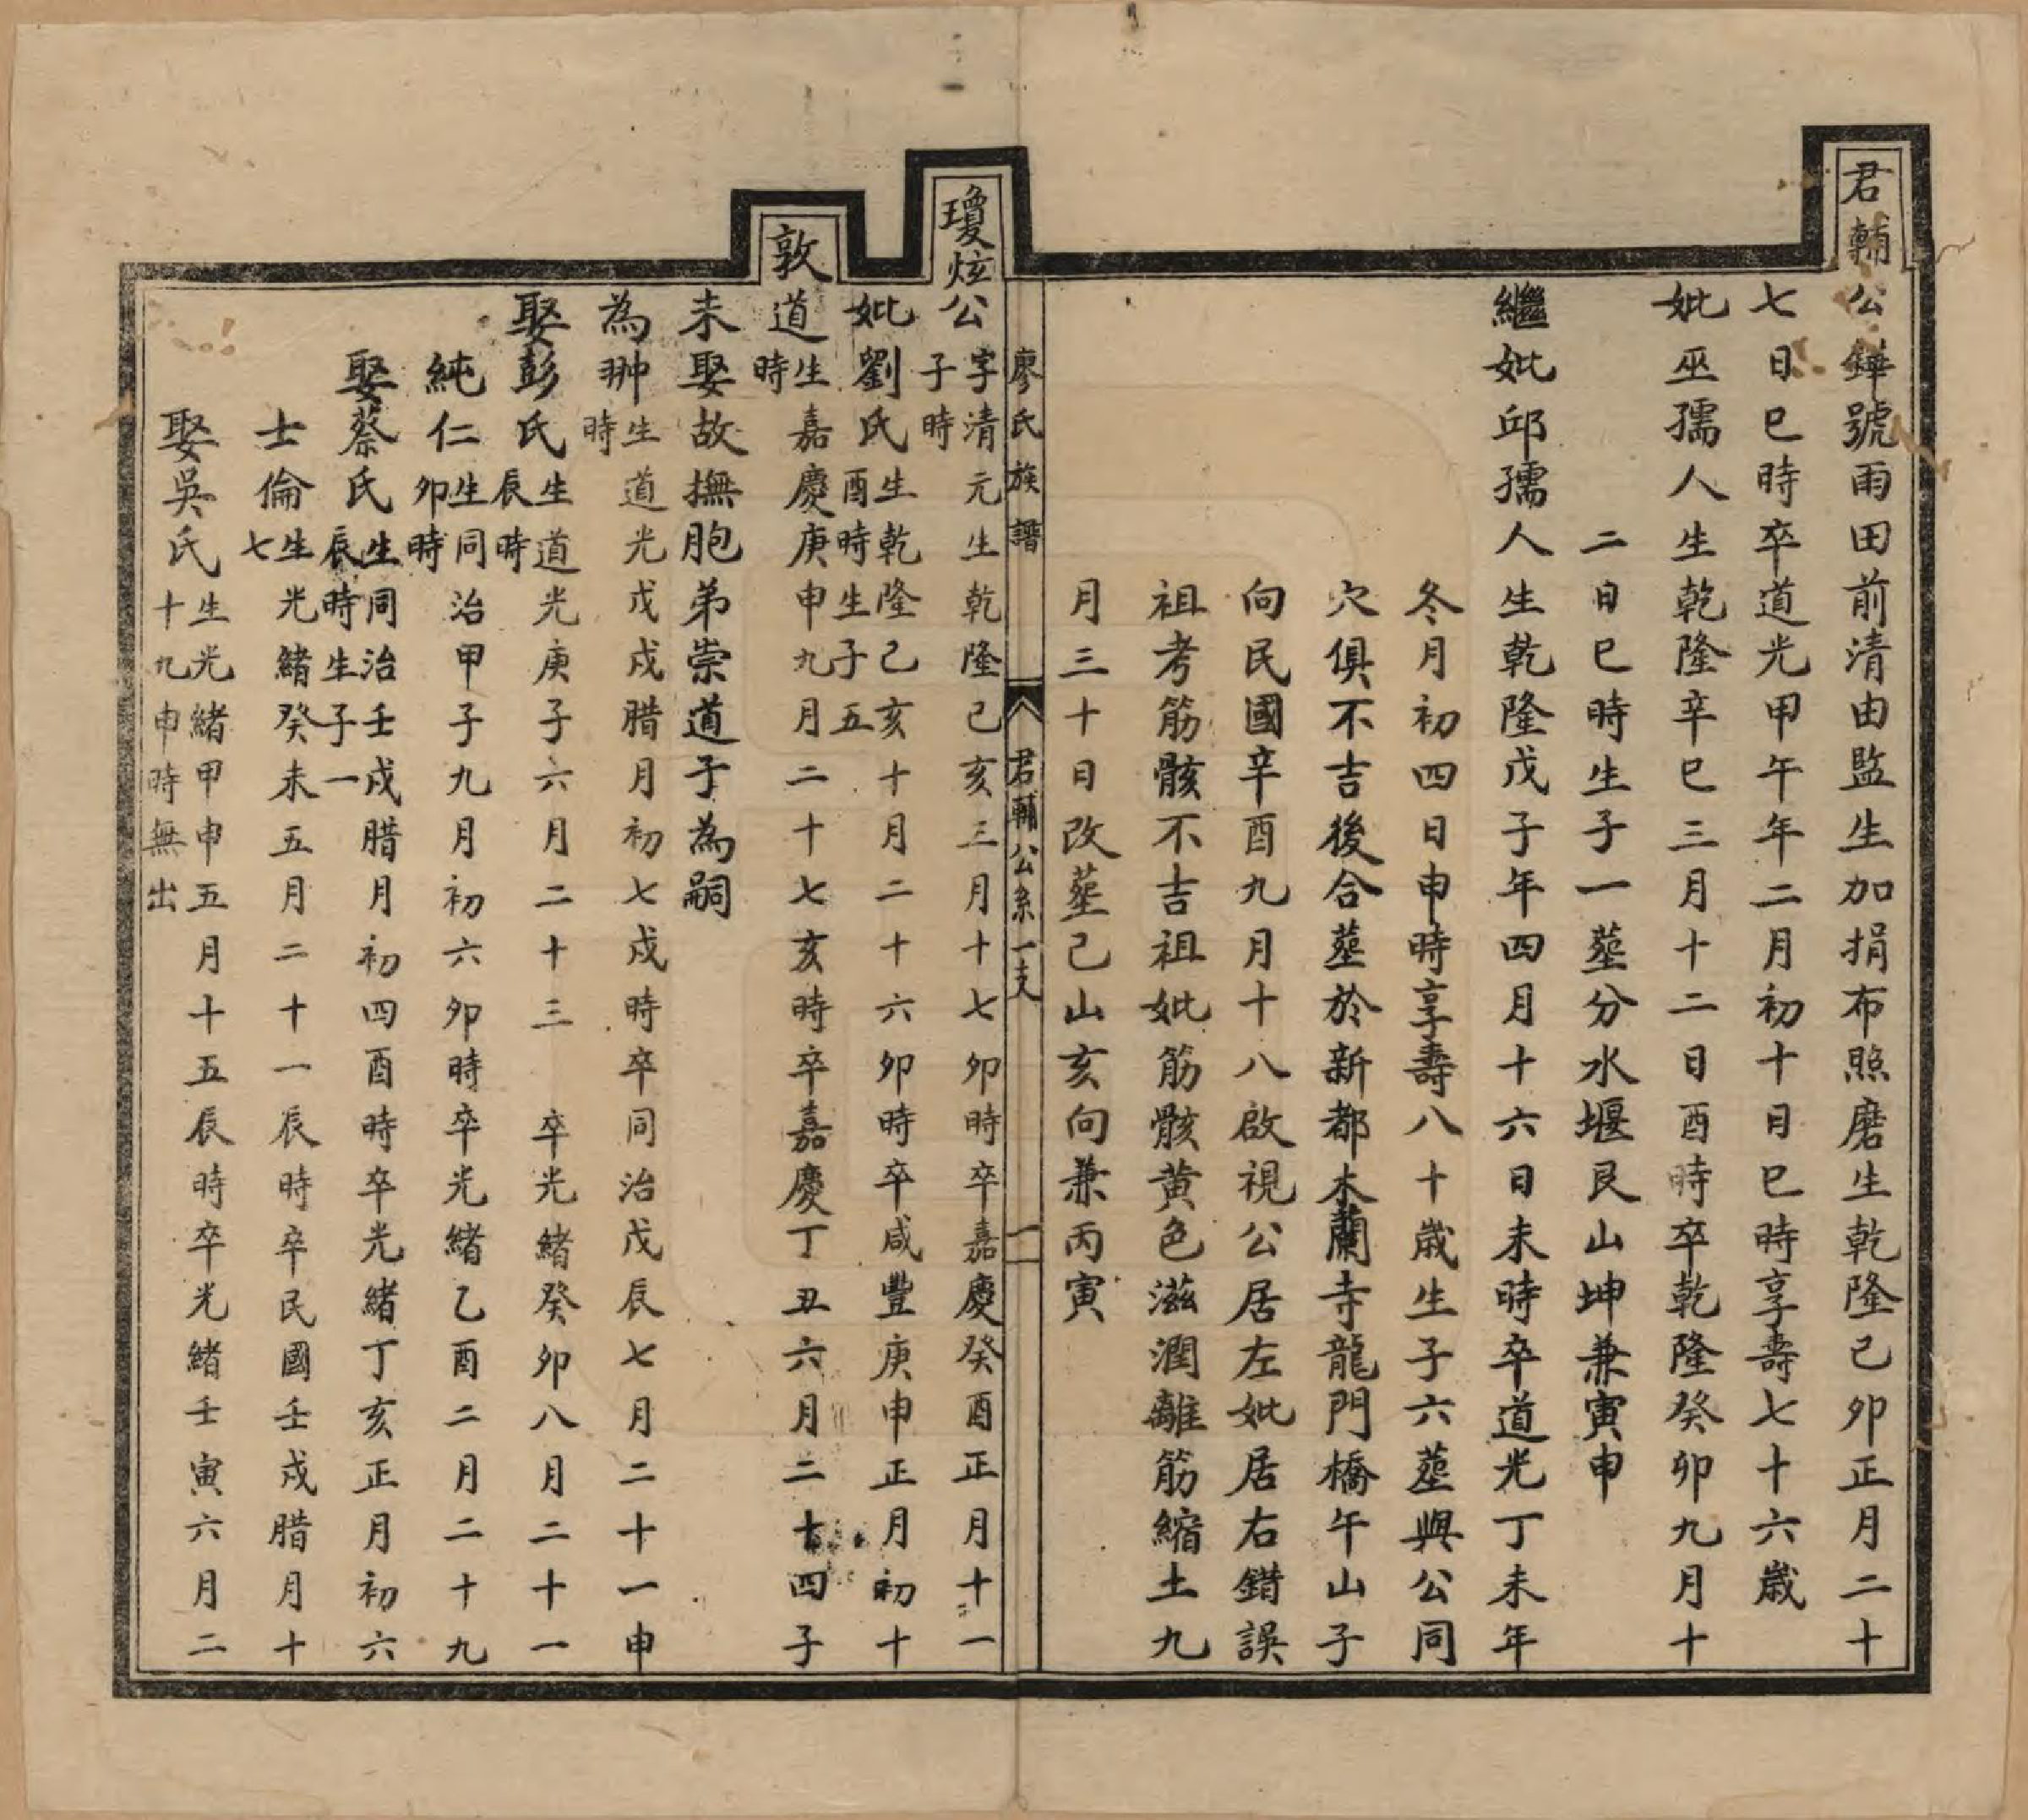 君輔公鏵號雨田前清由監生加捐布照磨生乾隆己卯正月二十
七日巳時卒道光甲午年二月初十日巳時享壽七十六歲
妣巫孺人生乾隆辛巳三月十二日酉時卒乾隆癸卯九月十
二日巳時生子一塟分水堰艮山坤兼寅申
繼妣邱孺人生乾隆戊子年四月十六日未時卒道光丁未年
冬月初四日申時享壽八十歲生子六塟與公同
穴俱不吉後合塟於新都木蘭寺龍門橋午山子
向民國辛酉九月十八啟視公居左妣居右錯誤
祖考筋骸不吉祖妣筋骸黄色滋潤離筋縮土九
月三十日改塟己山亥向兼丙寅
廖氏族譜
君輔公系一支
一
瓊炫公字清元生乾隆己亥三月十七卯時卒嘉慶癸酉正月十一
子時
妣劉氏生乾隆己亥十月二十六卯時卒咸豐庚申正月初十
酉時生子五
敦道生嘉慶庚申九月二十七亥時卒嘉慶丁丑六月二十四子
時
未娶故撫胞弟崇道子為嗣
為翀生道光戊戌腊月初七戌時卒同治戊辰七月二十一申
時
娶彭氏生道光庚子六月二十三 卒光緒癸卯八月二十一
辰時
純仁生同治甲子九月初六卯時卒光緒乙酉二月二十九
卯時
娶蔡氏生同治壬戌腊月初四酉時卒光緒丁亥正月初六
辰時生子一
士倫生光緒癸未五月二十一辰時卒民國壬戌腊月十
七
娶吳氏生光緒甲申五月十五辰時卒光緒壬寅六月二
十九申時無出